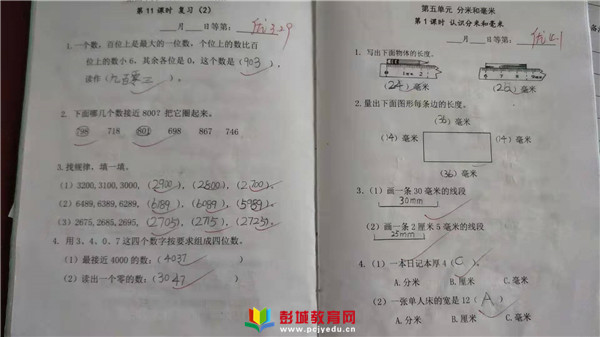 第11课时 复习(2)
____月____日等第: 优 3.29
1.一个数,百位上是最大的一位数,个位上的数比百
位上的数小6,其余各位是0,这个数是(903),
读作(九百零三)。
2. 下面哪几个数接近800?把它圈起来。
798 718 801 698 867 746
3.找规律,填一填。
(1) 3200, 3100, 3000, (2900), (2800), (2700)。
(2) 6489, 6389, 6289, (6189), (6089), (5989)。
(3) 2675, 2685, 2695, (2705), (2715), (2725)。
4. 用3、4、0、7这四个数字按要求组成四位数。
(1)最接近4000的数:(4037)
(2)读出一个零的数:(3047)
第五单元 分米和毫米
第1课时 认识分米和毫米
____月____日等第: 优 4.1
1. 写出下面物体的长度。
(24)毫米 (28)毫米
2.量出下面图形每条边的长度。
(36)毫米
(14)毫米 (14)毫米
(36)毫米
3.(1)画一条30毫米的线段
30mm
(2)画一条2厘米5毫米的线段
25mm
4.(1)一本日记本厚4(C)。
A.分米 B.厘米 C.毫米
(2)一张单人床的宽是12(A)
A.分米 B.厘米 C.毫米
彭城教育网
www.pcjyedu.cn